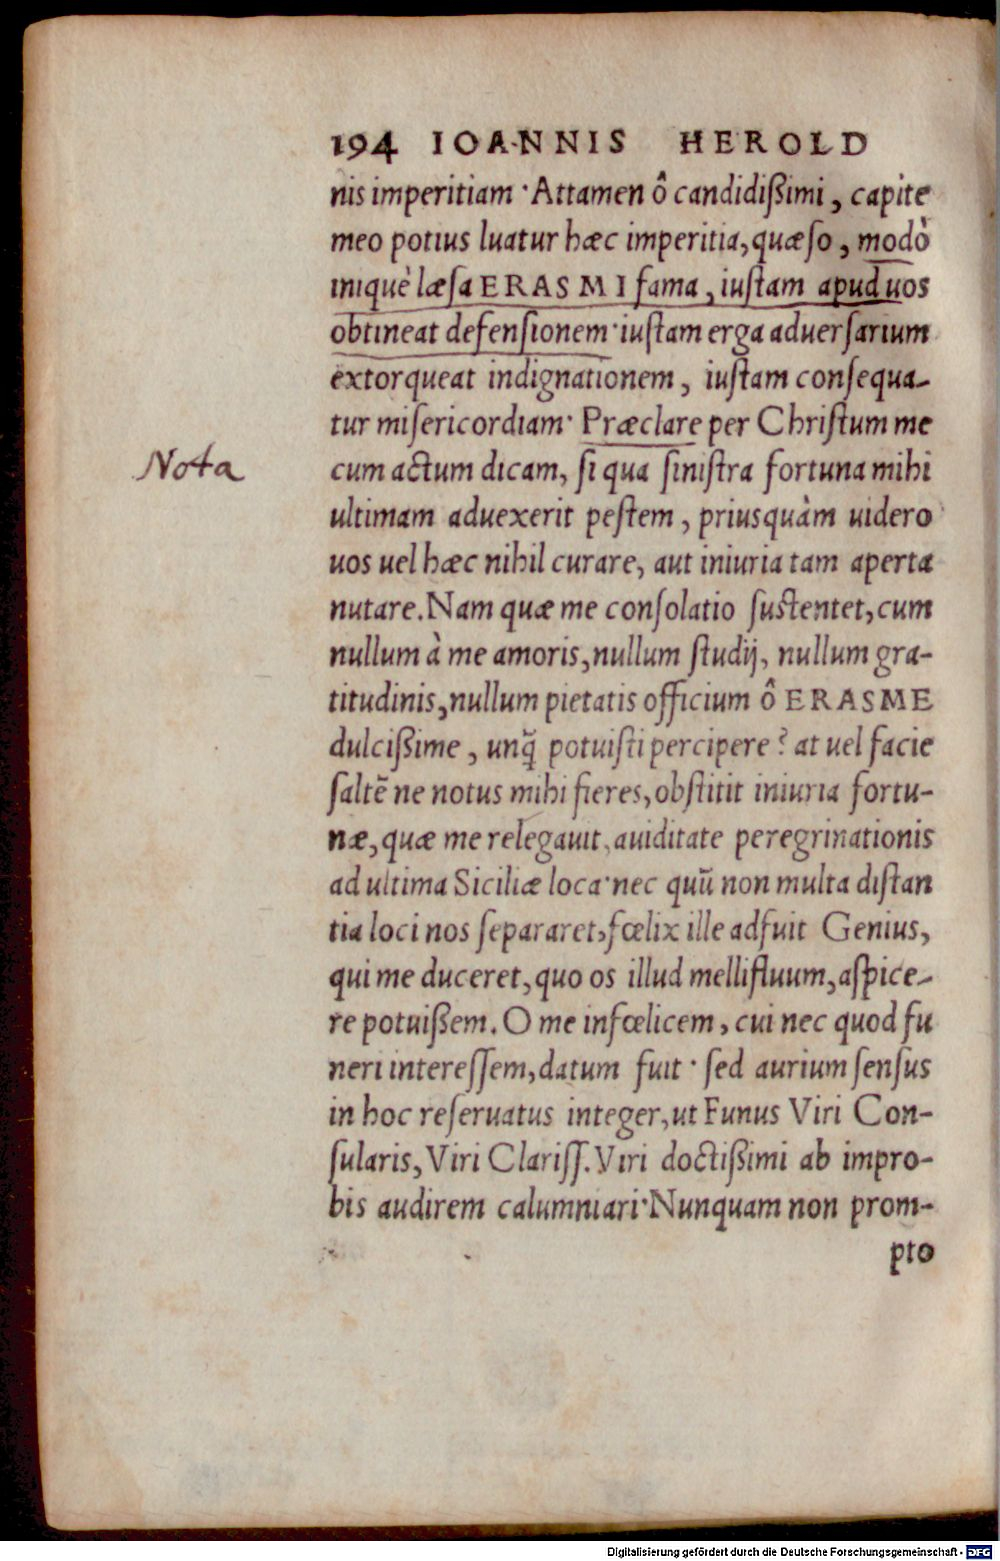 194 IOANNIS HEROLD
nis imperitiam· Attamen ô candidißimi, capite
meo potius luatur hæc imperitia, quæſo, modò
iniquè læſa ERASMI fama, iuſtam apud uos
obtineat defenſionem· iuſtam erga aduerſarium
extorqueat indignationem, iuſtam conſequa-
tur miſericordiam· Præclare per Chriſtum me
Nota
cum actum dicam, ſi qua ſiniſtra fortuna mihi
ultimam aduexerit peſtem, priusquàm uidero
uos uel hæc nihil curare, aut iniuria tam aperta
nutare. Nam quæ me conſolatio ſuſtentet, cum
nullum à me amoris, nullum ſtudij, nullum gra-
titudinis, nullum pietatis officium ô ERASME
dulcißime, unq̃ potuiſti percipere? at uel facie
ſaltẽ ne notus mihi fieres, obſtitit iniuria fortu-
næ, quæ me relegauit, auiditate peregrinationis
ad ultima Siciliæ loca· nec quũ non multa diſtan
tia loci nos ſepararet, fœlix ille adfuit Genius,
qui me duceret, quo os illud mellifluum, aſpice-
re potuißem. O me infœlicem, cui nec quod fu
neri intereſſem, datum fuit· ſed aurium ſenſus
in hoc reſeruatus integer, ut Funus Viri Con-
ſularis, Viri Clariſſ. Viri doctißimi ab impro-
bis audirem calumniari· Nunquam non prom-
pto
Digitalisierung gefördert durch die Deutsche Forschungsgemeinschaft - DFG